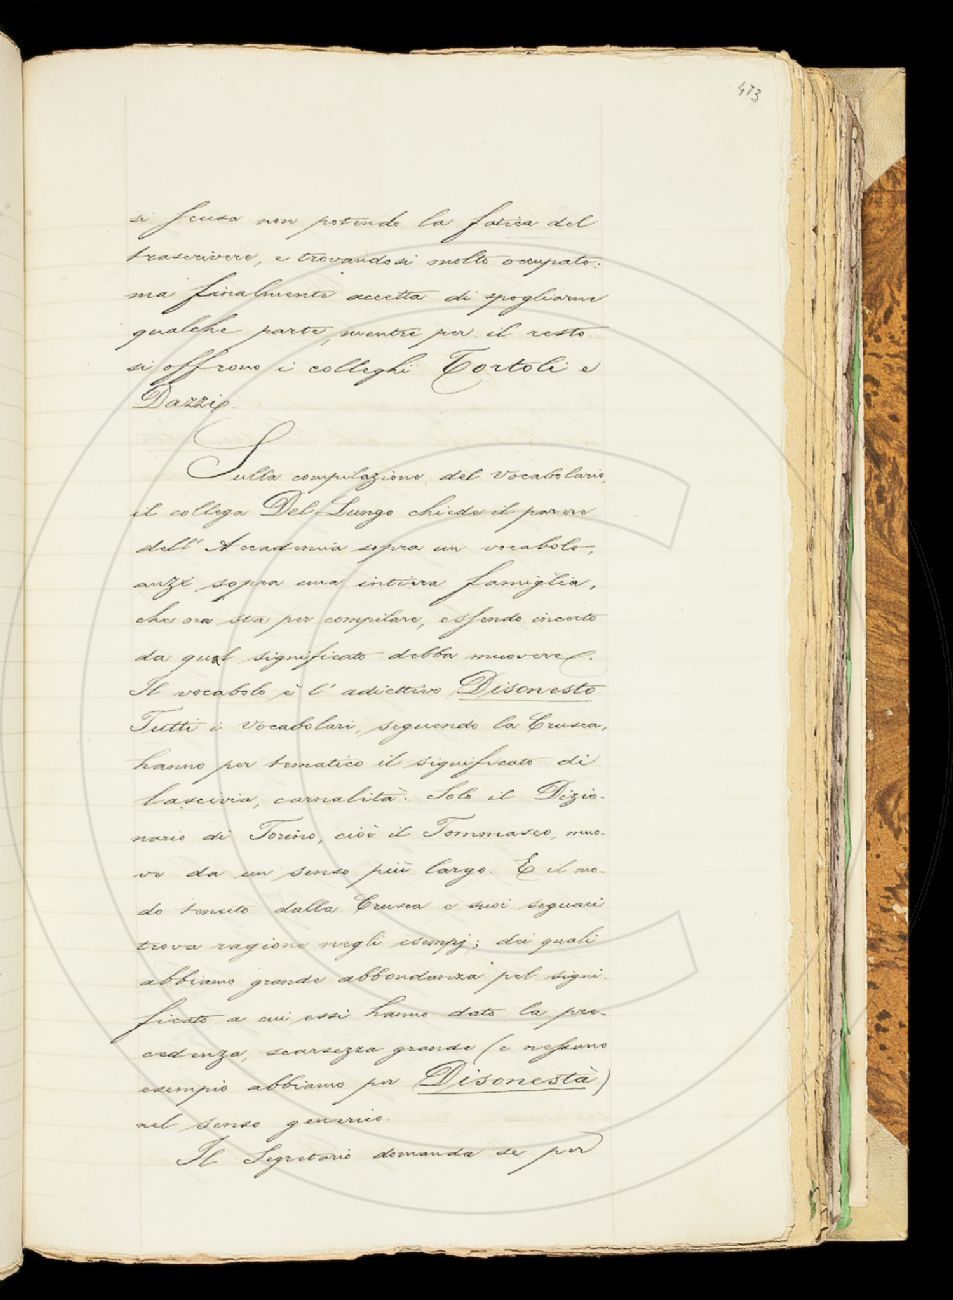 473
si scusa non potendo la fatica del
trascrivere, e trovandosi molto occupato:
ma finalmente accetta di spogliarne
qualche parte, mentre per il resto
si offrono i colleghi Tortoli e
Dazzi.
Sulla compilazione del Vocabolario,
il collega Del Lungo chiede il parere
dell' Accademia sopra un vocabolo,
anzi sopra una intiera famiglia,
che ora sta per compilare, essendo incerto
da qual significato debba muovere.
Il vocabolo è l' adiettivo Disonesto
Tutti i Vocabolari, seguendo la Crusca,
hanno per tematico il significato di
lascivia, carnalità. Solo il Dizio-
nario di Torino, cioè il Tommaseo, muo-
ve da un senso più largo. E il mo-
do tenuto dalla Crusca e suoi seguaci
trova ragione negli esempj; dei quali
abbiamo grande abbondanza pel signi-
ficato a cui essi hanno dato la pre-
cedenza, scarsezza grande (e nessuno
esempio abbiamo per Disonestà)
nel senso generico.
Il Segretario domanda se per